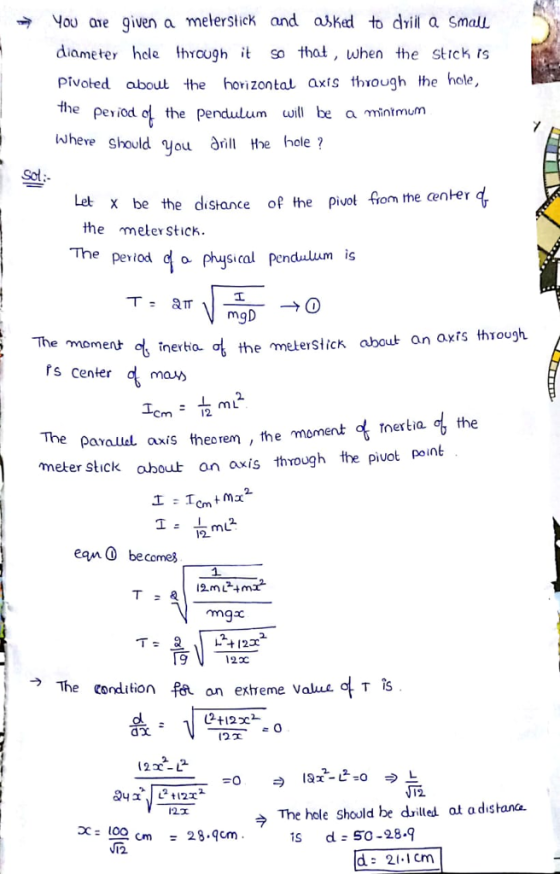 → You are given a meterstick and asked to drill a small
diameter hole through it so that, when the stick is
pivoted about the horizontal axis through the hole,
the period of the pendulum will be a minimum
where should you drill the hole ?
Sol:-
Let x be the distance of the pivot from the center of
the meterstick.
The period of a physical pendulum is
T = 2π √(I / mgD) → ①
The moment of inertia of the meterstick about an axis through
i's center of mass
Icm = 1/12 mL²
The parallel axis theorem, the moment of inertia of the
meter stick about an axis through the pivot point.
I = Icm + mx²
I = 1/12 mL²
eqn ① becomes
T = 2 √((1 / 12mL²+mx²) / mgx)
T = 2/√g √((L²+12x²) / 12x)
→ The condition for an extreme value of T is.
d/dx = √((L²+12x²) / 12x) = 0
(12x²-L²) / (24x² √((L²+12x²) / 12x)) = 0 ⇒ 12x²-L²=0 ⇒ L/√12
x = 100/√12 cm = 28.9cm.
⇒ The hole should be drilled at a distance
is d = 50-28.9
d = 21.1 cm